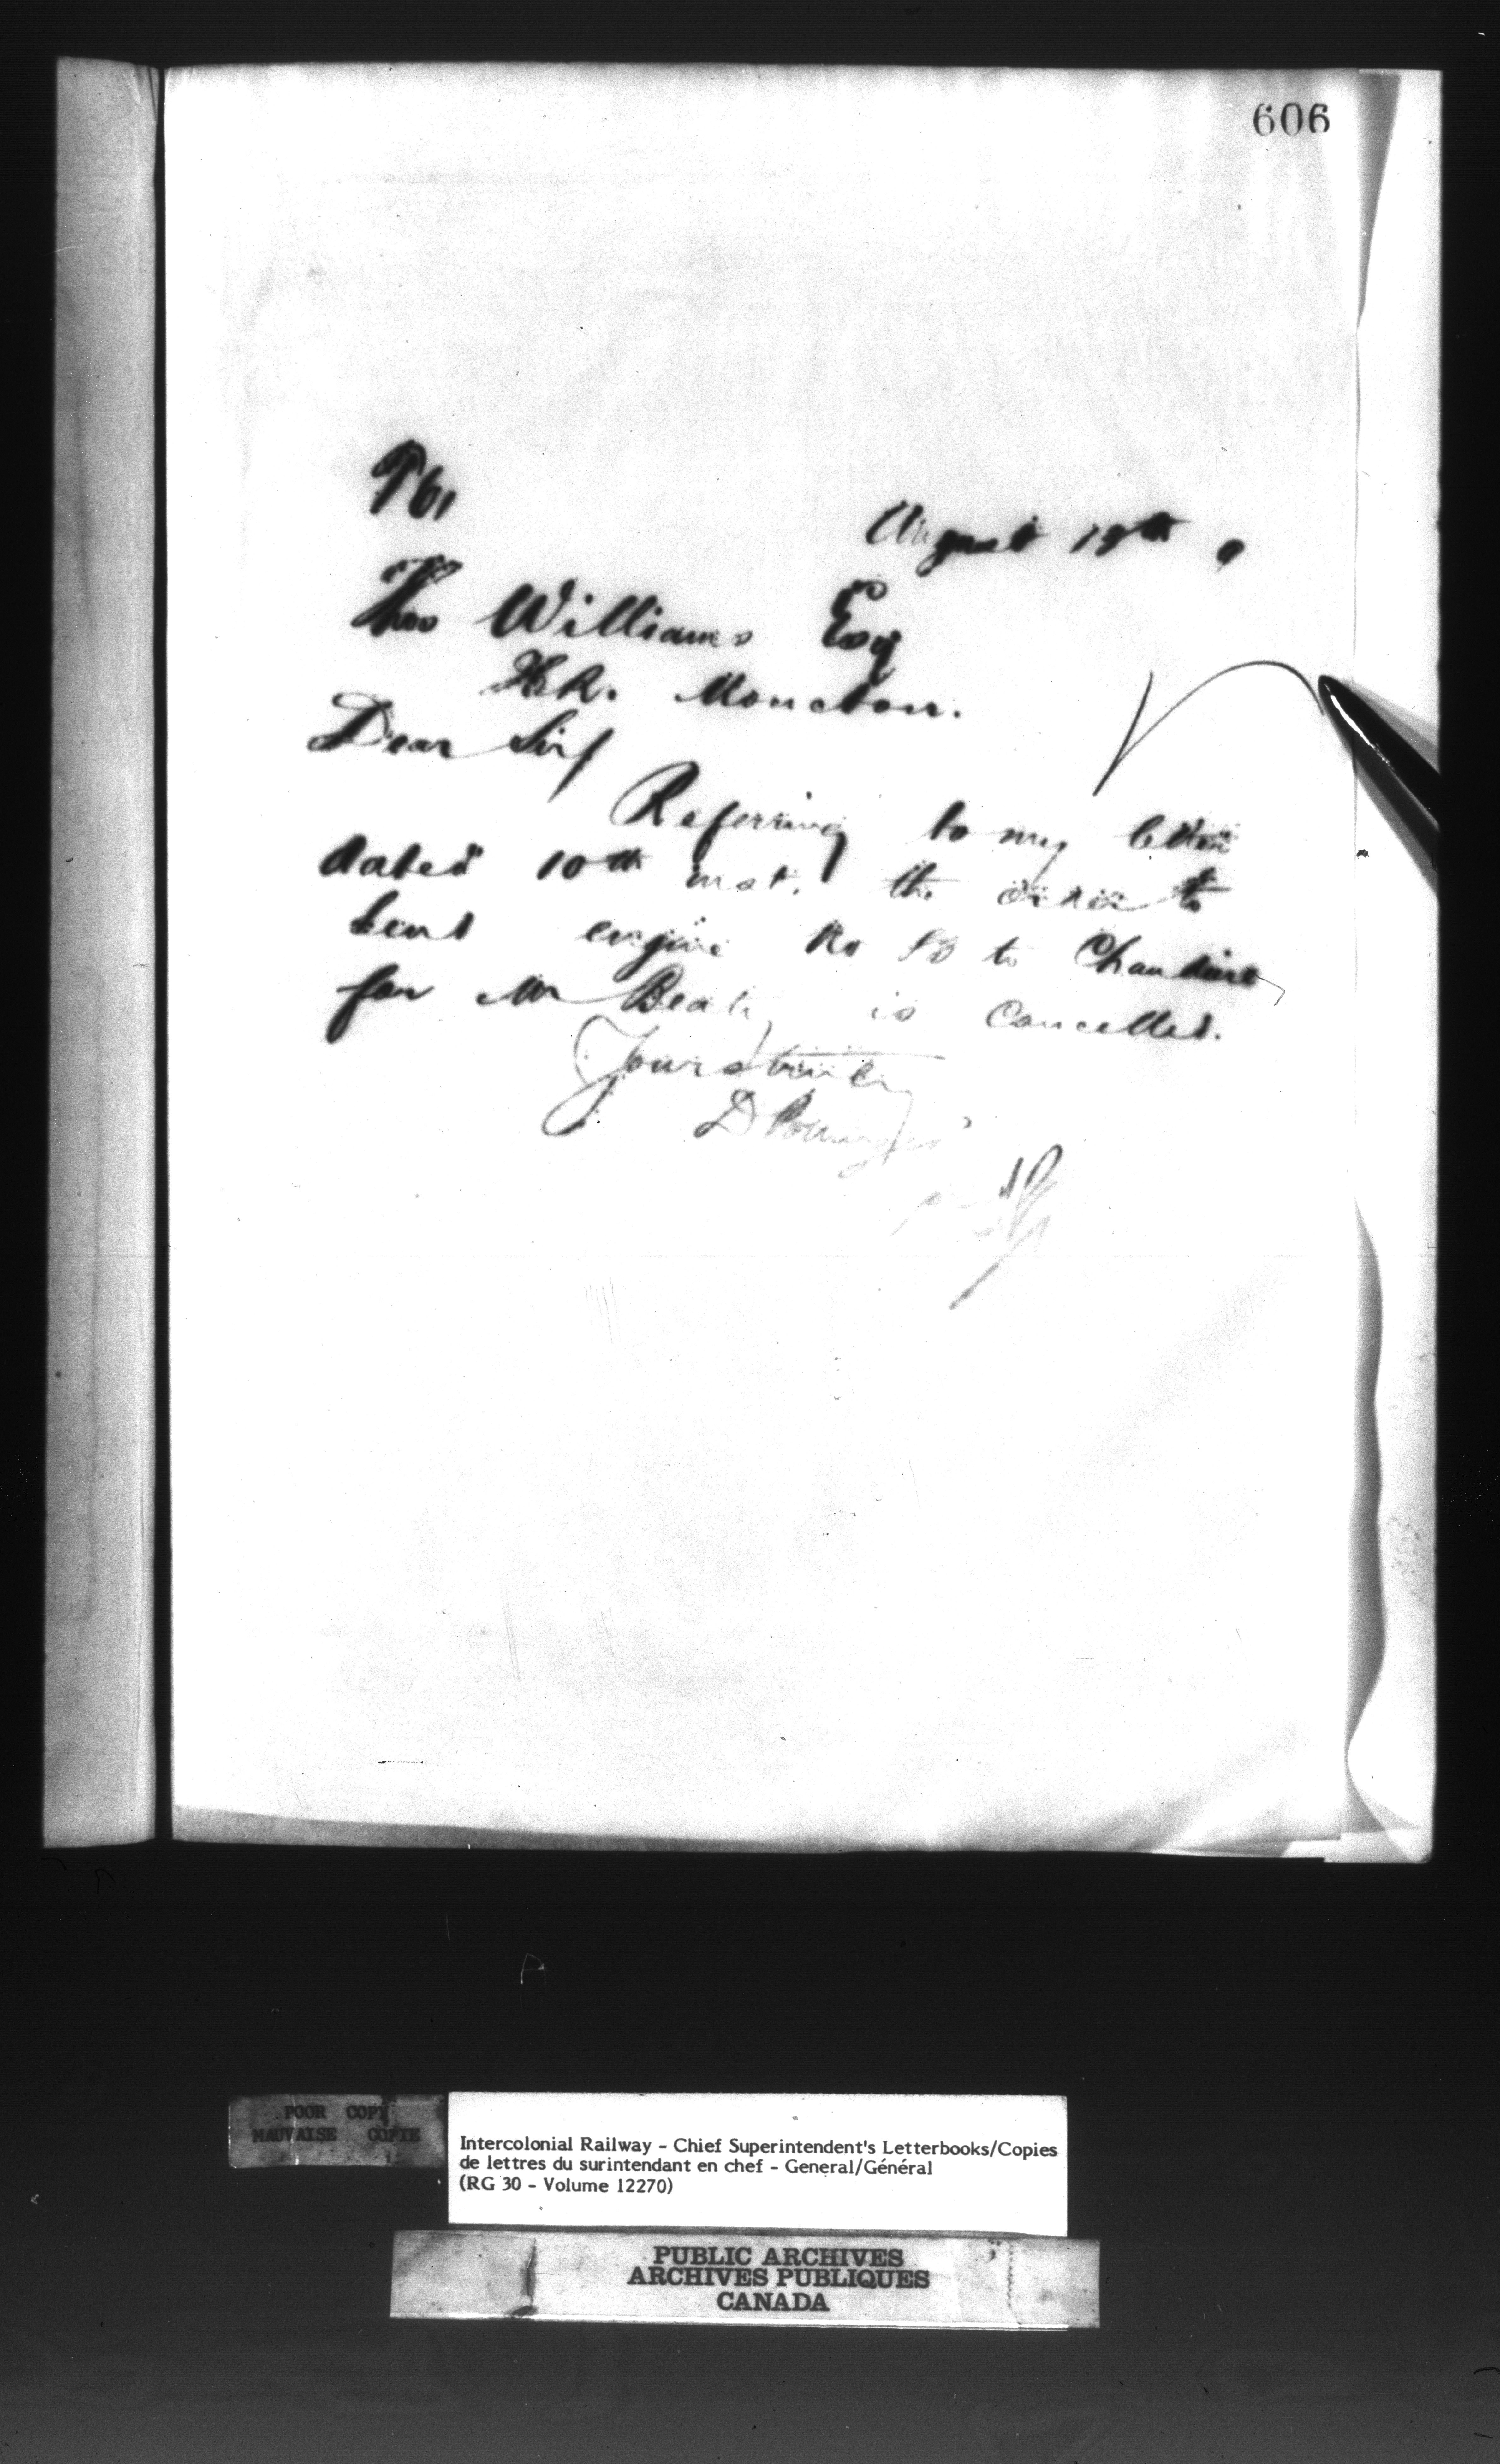 606
August 19th 9
Thos Williams Esq
Moncton.
Dear Sir/
Referring to my letter
dated 10th inst. the order to
send engine No to Chaudiere
for Mr Beatty is cancelled.
Yours truly
D Pottinger
POOR COPY
MAUVAISE COPIE
Intercolonial Railway - Chief Superintendent's Letterbooks/Copies
de lettres du surintendant en chef - General/Général
(RG 30 - Volume 12270)
PUBLIC ARCHIVES
ARCHIVES PUBLIQUES
CANADA